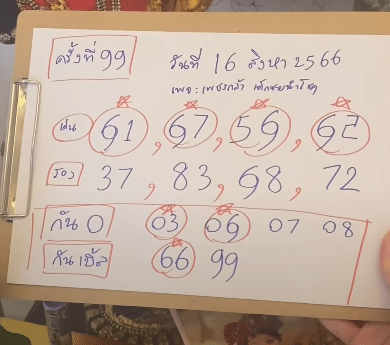 ครั้งที่ 99 วันที่ 16 สิงหา 2566
เพจ: เพชรกล้า เด็กชายนำโชค
เด่น 61, 67, 56, 62
รอง 37, 83, 68, 72
กัน 0 03 06 07 08
กันเบิ้ล 66 99